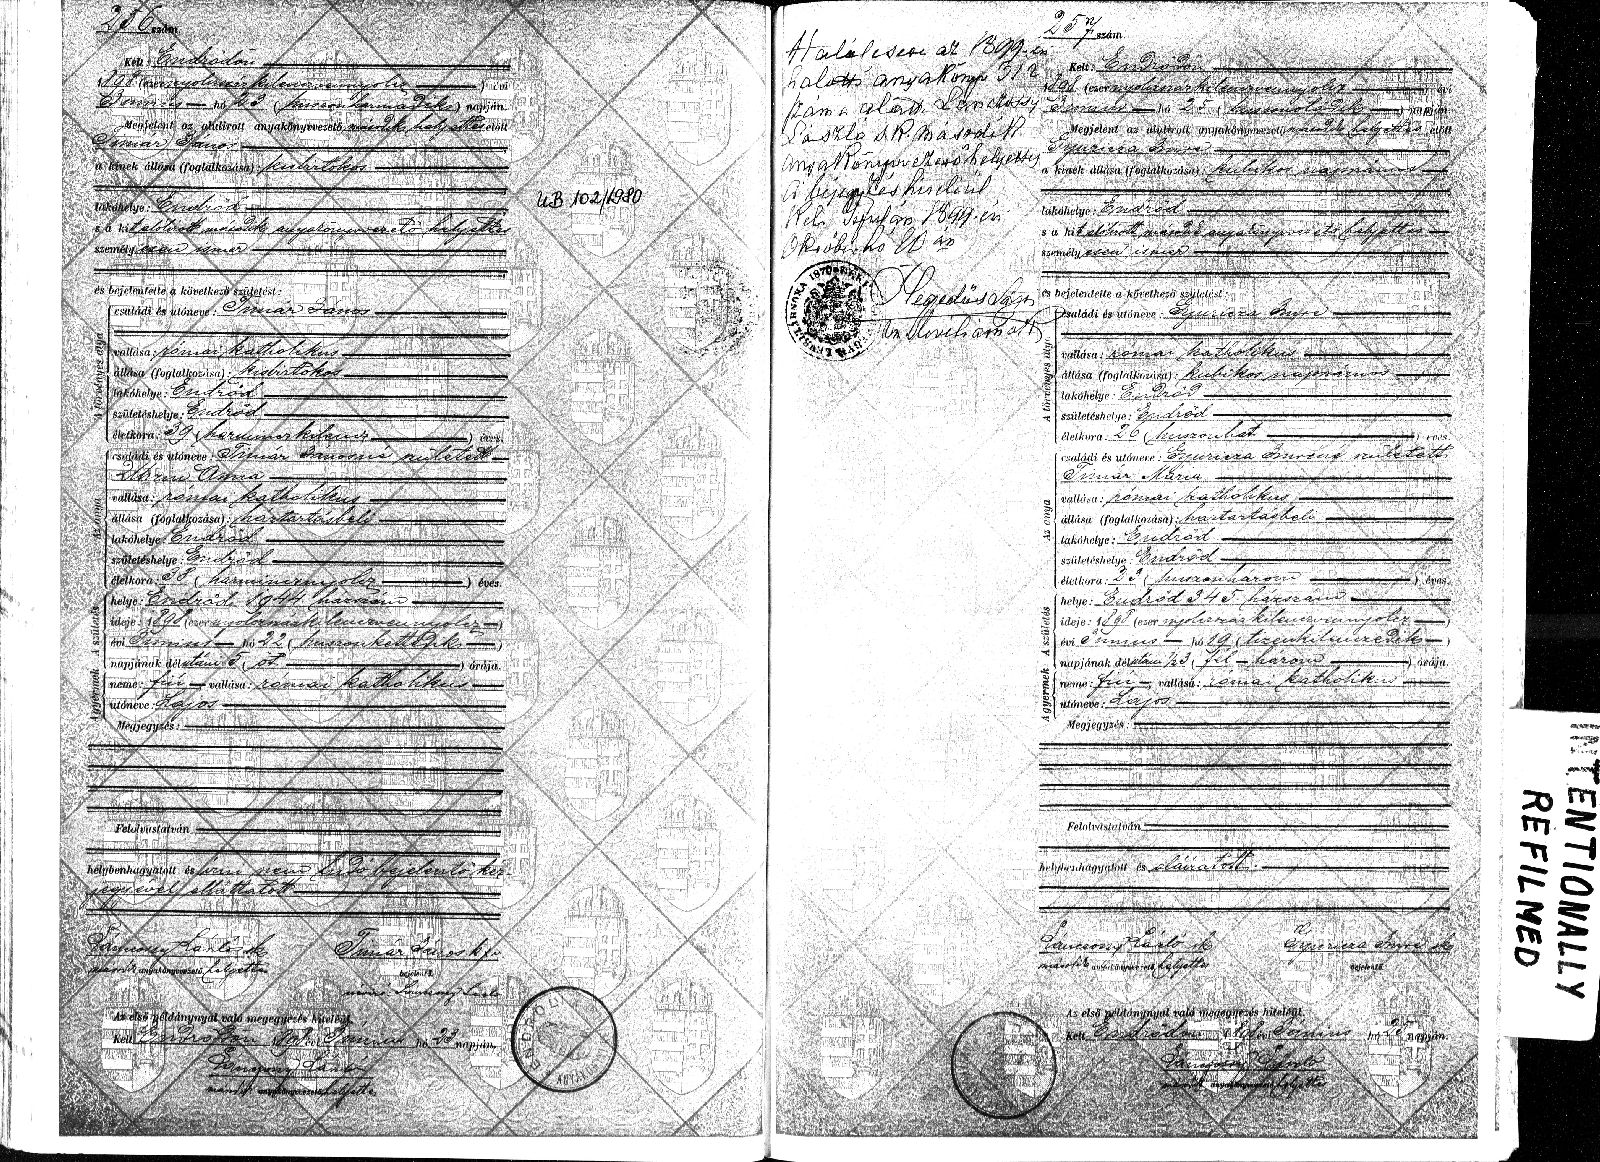 256 szám.
Kelt: Endrődön
1898 (ezernyolczszázkilenczvennyolcz) évi
Június hó 23 (huszonharmadik) napján.
Megjelent az alulirott anyakönyvvezető második helyettes előtt
Timár János
a kinek állása (foglalkozása): kisbirtokos
lakóhelye: Endrőd
s a kit alólirott második anyakönyvvezető helyettes
személyesen ismer
és bejelentette a következő születést:
A törvényes atya
családi és utóneve: Timár János
vallása: római katholikus
állása (foglalkozása): kisbirtokos
lakóhelye: Endrőd
születéshelye: Endrőd
életkora: 39 (harminczkilencz) éves.
Az anya
családi és utóneve: Timár Jánosné született
Anna
vallása: római katholikus
állása (foglalkozása): háztartásbeli
lakóhelye: Endrőd
születéshelye: Endrőd
életkora: 38 (harmincznyolcz) éves.
A születés
helye: Endrőd, 1944 házszám
ideje: 1898 (ezernyolczszázkilenczvennyolcz)
évi Június hó 22 (huszonkettedik)
napjának délután 5 (öt) órája.
A gyermek
neme: fiú vallása: római katholikus
utóneve: Lajos
Megjegyzés:
Felolvastatván
helybenhagyatott és írni nem tudó bejelentő kéz-
jegyével elláttatott
Lánczossy László sk
második anyakönyvvezető helyettes
Timár János
bejelentő.
Lánczossy László
Az első példánynyal való megegyezés hiteléül.
Kelt Endrődön 1898 évi Június hó 23 napján.
Lánczossy László
második anyakönyvvezető helyettes
UB 102/1980
257 szám.
Halálesete az 1899-en
halotti anyakönyv 312
szám alatt Lánczossy
László sk második
anyakönyvvezető helyettes
A bejegyzés hiteléül
Kelt Gyulán 1899-én
Október hó
Hegedüs
Kelt: Endrődön
1898 (ezernyolczszázkilenczvennyolcz) évi
Június hó 25 (huszonötödik) napján.
Megjelent az alulirott anyakönyvvezető második helyettes előtt
Gyuricza Imre
a kinek állása (foglalkozása): kubikos napszámos
lakóhelye: Endrőd
s a kit alólirott második anyakönyvvezető helyettes
személyesen ismer
és bejelentette a következő születést:
A törvényes atya
családi és utóneve: Gyuricza Imre
vallása: római katholikus
állása (foglalkozása): kubikos napszámos
lakóhelye: Endrőd
születéshelye: Endrőd
életkora: 26 (huszonhat) éves
Az anya
családi és utóneve: Gyuricza Imréné született
Timár Mária
vallása: római katholikus
állása (foglalkozása): háztartásbeli
lakóhelye: Endrőd
születéshelye: Endrőd
életkora: 23 (huszonhárom) éves.
A születés
helye: Endrőd 345 házszám
ideje: 1898 (ezernyolczszázkilenczvennyolcz)
évi Június hó 19 (tizenkilenczedik)
napjának délután 1/2 3 (fél három) órája.
A gyermek
neme: fiú vallása: római katholikus
utóneve: Lajos
Megjegyzés:
Felolvastatván
helybenhagyatott és aláiratott.
Lánczossy László sk
második anyakönyvvezető helyettes
Gyuricza Imre sk
bejelentő.
Az első példánynyal való megegyezés hiteléül.
Kelt Endrődön 1898 évi Június hó 25 napján.
Lánczossy László
második anyakönyvvezető helyettes
INTENTIONALLY
REFILMED